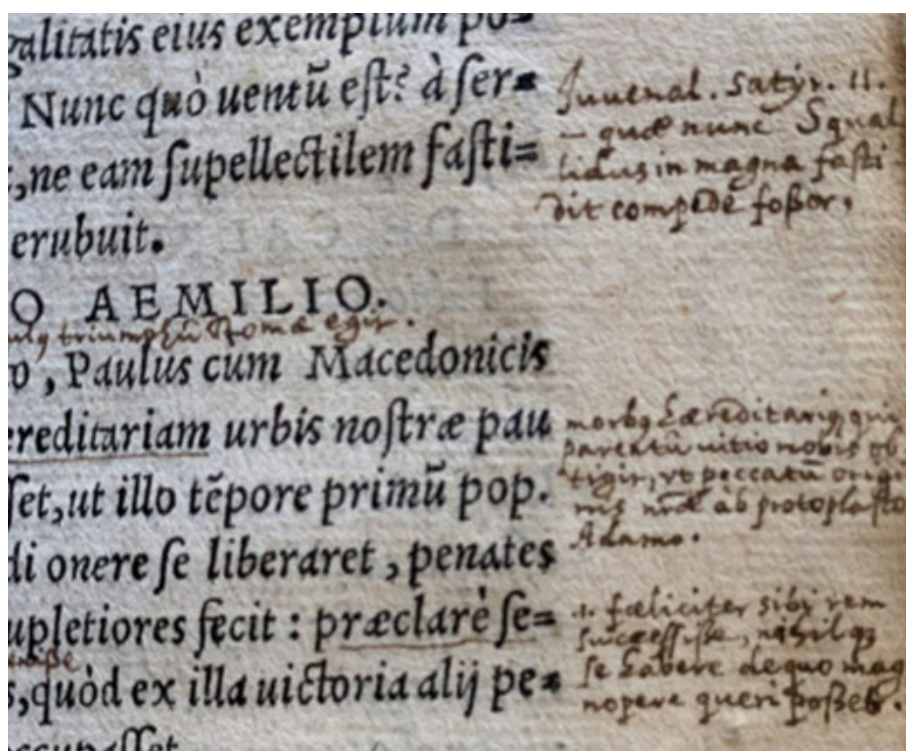 galitatis eius exemplum po=
Nunc quò uentũ eſt? à ſer=
,ne eam ſupellectilem faſti=
erubuit.
O AEMILIO.
triumphũ Romæ egit.
o, Paulus cum Macedonicis
reditariam urbis noſtræ pau
ſet, ut illo tẽpore primũ pop.
di onere ſe liberaret, penates
upletiores fecit: præclarè ſe=
s, quòd ex illa uictoria alij pe=
ccupaſſet
Juuenal. Satyr. 11.
— quæ nunc Squal
lidus in magna faſti
dit compede foßor.
morbꝰ hæreditariꝰ, qui
parentũ uitio nobis ob
tigit, vt peccatũ origi
ab protoplaſto
Adamo.
.i. fœliciter sibi rem
ſucceſſiſſe, nihilqꝫ
ſe habere de quo mag
nopere queri poßet.